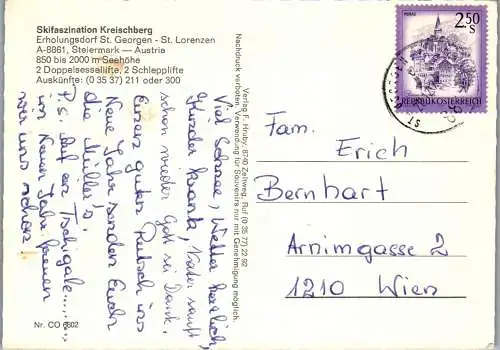 Skifaszination Kreischberg
Erholungsdorf St. Georgen - St. Lorenzen
A-8861, Steiermark — Austria
850 bis 2000 m Seehöhe
2 Doppelsessellifte, 2 Schlepplifte
Auskünfte: (0 35 37) 211 oder 300
Viel Schnee, Wetter herrlich,
Kinder krank, Vater sauft
schon wieder Gott sei Dank.
Einen guten Rutsch ins
Neue Jahr senden Euch
die Müller's.
P.S. Auf an Tschigale......
im Neuen Jahr freuen
wir uns schon!
Nr. CO 6802
Verlag F. Hruby, 8740 Zeltweg, Ruf (0 35 77) 22 92
Nachdruck verboten, Verwendung für Souvenirs nur mit Genehmigung möglich.
MURAU
2.50
S
REPUBLIK ÖSTERREICH
Fam.
Erich
Bernhart
Arnimgasse 2
1210 Wien